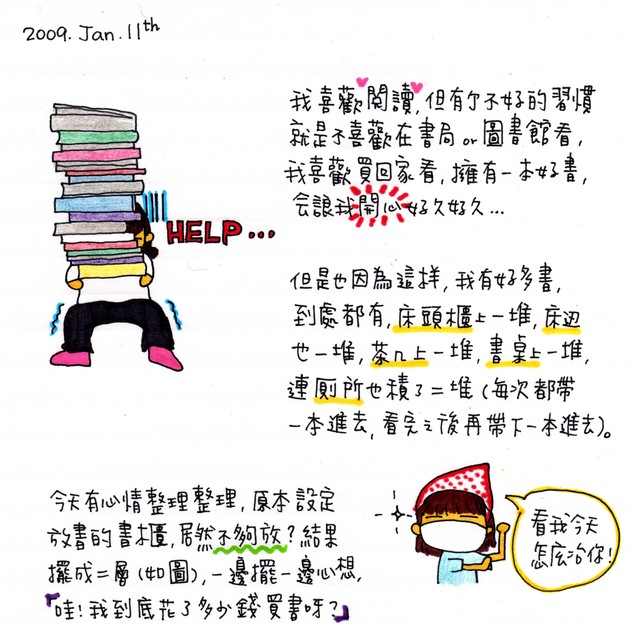 2009. Jan. 11th
我喜歡閱讀, 但有个不好的習慣
就是不喜歡在書局or圖書館看,
我喜歡買回家看, 擁有一本好書,
会讓我開心好久好久...
HELP...
但是也因為這样, 我有好多書,
到處都有, 床頭櫃上一堆, 床边
也一堆, 茶几上一堆, 書桌上一堆,
連廁所也積了二堆(每次都帶
一本進去, 看完之後再帶下一本進去)。
今天有心情整理整理, 原本設定
放書的書櫃, 居然不夠放? 結果
擺成二層(如圖), 一邊擺一邊心想,
「哇! 我到底花了多少錢買書呀?」
看我今天
怎么治你!